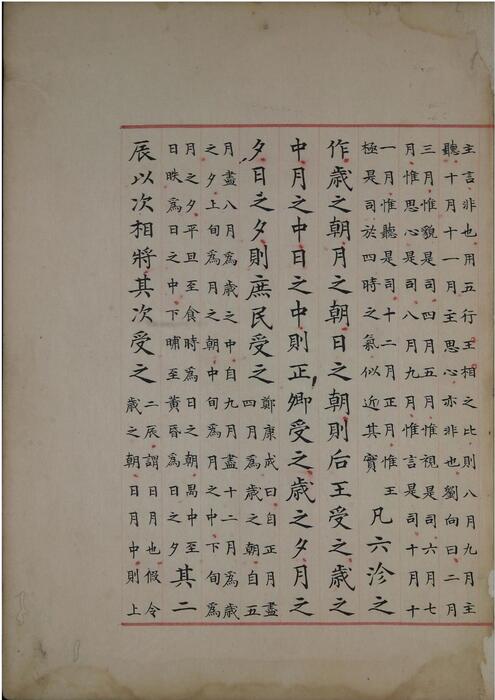 主言非也用五行王相之比則八月九月主
聽十月十一月主思心亦非也劉向曰二月
三月惟貌是司四月五月惟視是司六月七
月惟思心是司八月九月惟言是司十月十
一月惟聽是司十二月正月惟王
極是司於四時之氣似近其實
凡六沴之
作歲之朝月之朝日之朝則后王受之歲之
中月之中日之中則正卿受之歲之夕月之
夕日之夕則庶民受之
鄭康成曰自正月盡
四月為歲之朝自五
月盡八月為歲之中自九月盡十二月為歲
之夕上旬為月之朝中旬為月之中下旬為
月之夕平旦至食時為日之朝禺中至
日昳為日之中下晡至黃昏為日之夕
其二
辰以次相將其次受之
二辰謂日月也假令
歲之朝日月中則上